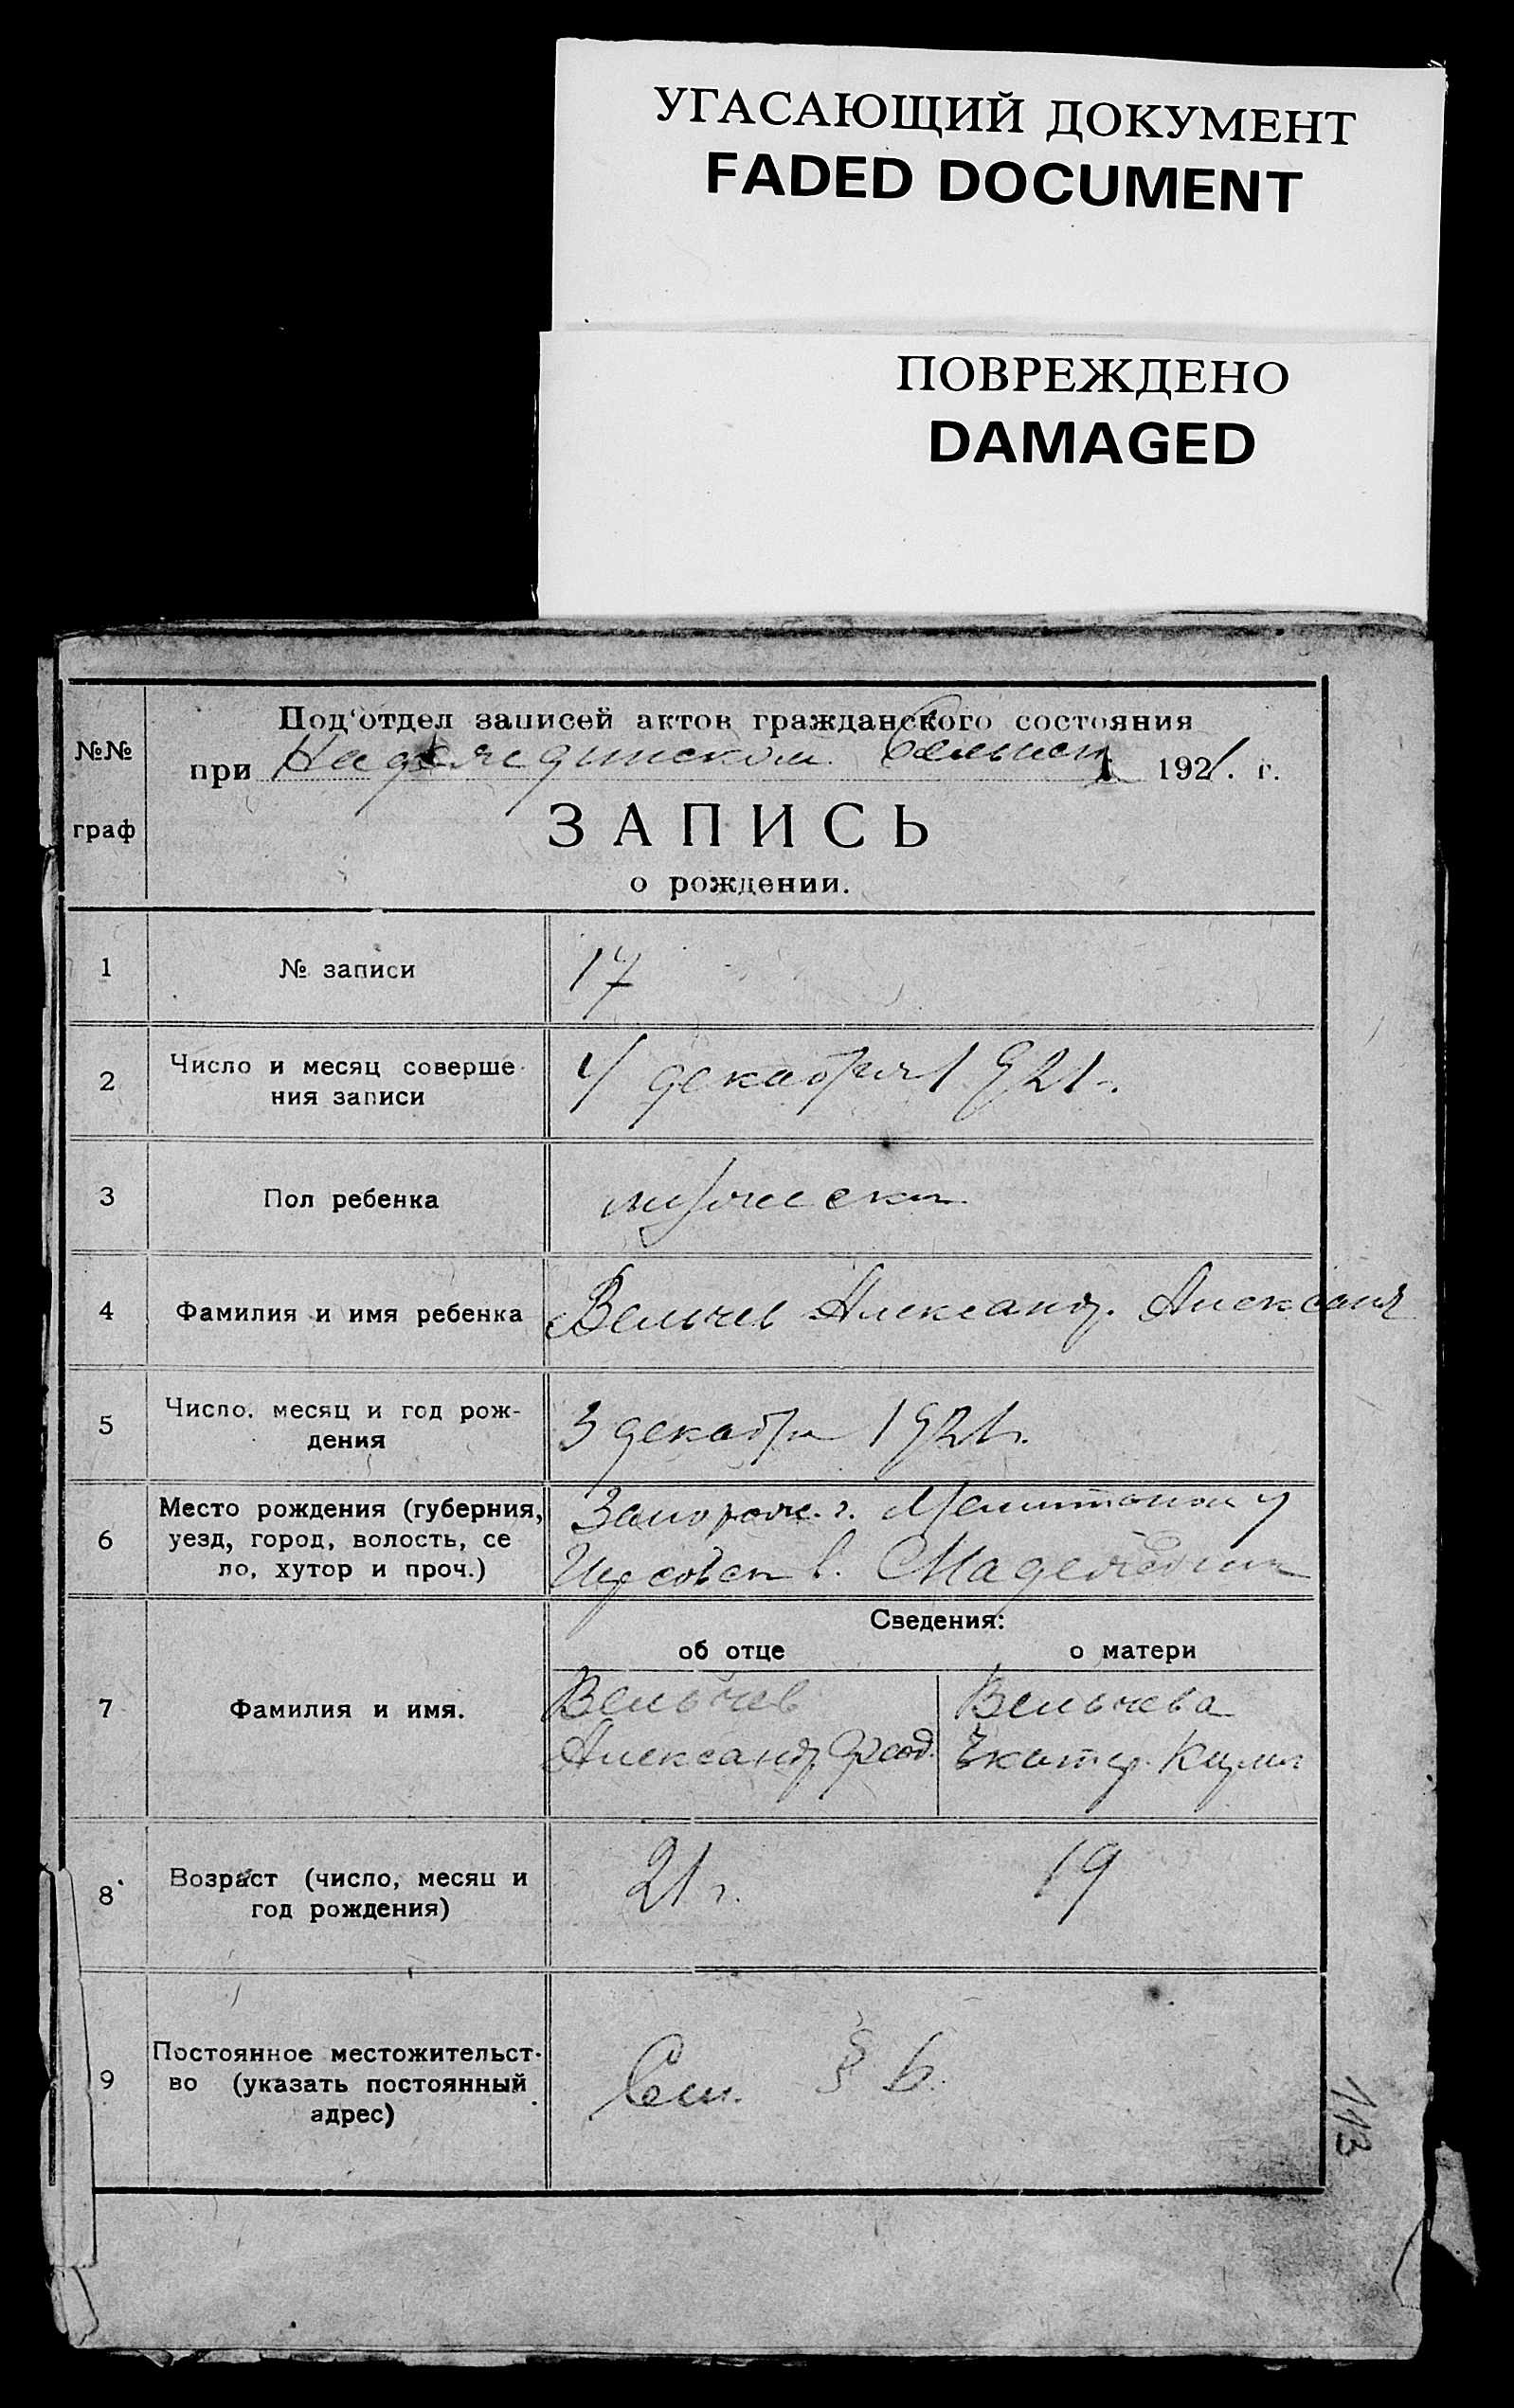 УГАСАЮЩИЙ ДОКУМЕНТ
FADED DOCUMENT
ПОВРЕЖДЕНО
DAMAGED
№№
граф
Под'отдел записей актов гражданского состояния
при 1921. г.
ЗАПИСЬ
о рождении.
1
№ записи
17
2
Число и месяц соверше-
ния записи
4 декабря 1921 г.
3
Пол ребенка
4
Фамилия и имя ребенка
Вельчев Александ. Алексан
5
Число, месяц и год рож-
дения
3 декабря 1921 г.
6
Место рождения (губерния,
уезд, город, волость, се
ло, хутор и проч.)
Запорож. г. Мелитопол у
в.
Сведения:
об отце
о матери
7
Фамилия и имя.
Вельчев
Александ Феод.
Вельчева
Екатер. Кирил
8
Возраст (число, месяц и
год рождения)
21 г.
19
9
Постоянное местожительст-
во (указать постоянный
адрес)
См. § 6.
113